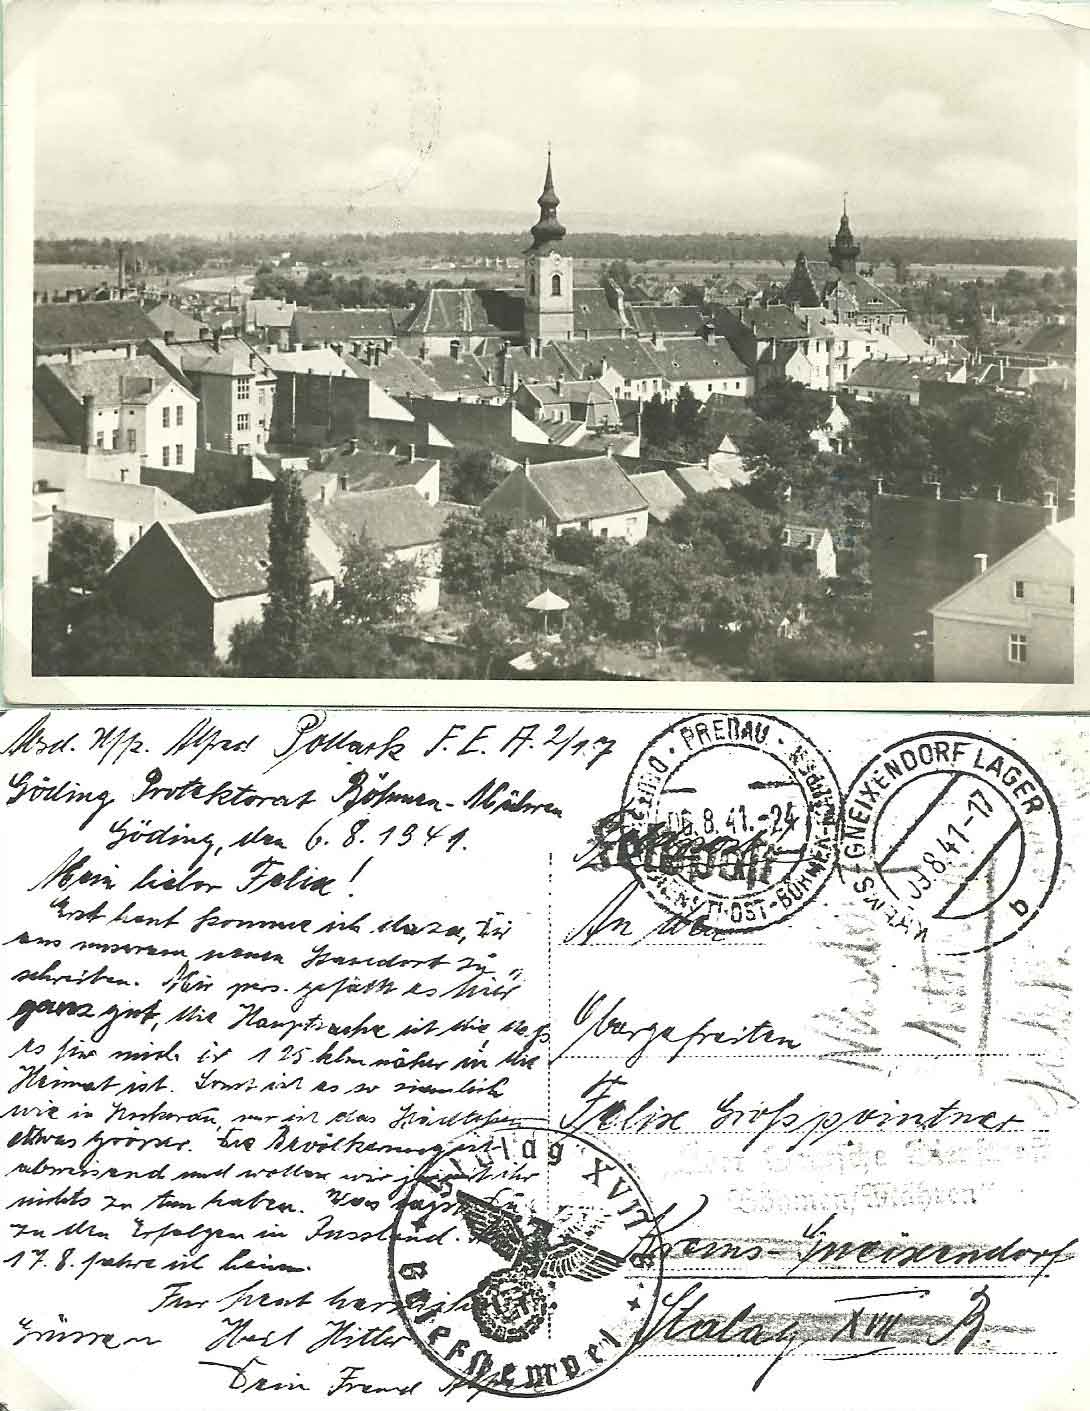 Absd. Uffz. Alfred Pollack F. E. A. 2/17
Göding Protektorat Böhmen-Mähren
Göding, den 6. 8. 1941.
Mein lieber Felix!
Erst heut komme ich dazu, Dir
aus unserem neuen Standort zu
schreiben. Mir pers. gefällt es hier
ganz gut, die Hauptsache ist die daß
es für mich 125 klm näher in die
Heimat ist. Sonst ist es so ziemlich
wie in nur ist das Städtchen
etwas grösser. Die Bevölkerung ist
abweisend und wollen wir mit ihr
nichts zu tun haben. Was sagst Du
zu den Erfolgen in Russland.
17. 8. fahre ich heim.
Für heut herzliche
Grüssen Heil Hitler
Dein Freund Alfred
Feldpost
PRERAU
06.8.41.-24
KREMS-GNEIXENDORF LAGER
09.8.41-17
b
An den
Obergefreiten
Felix Großpointner
Böhmen/Mähren"
Krems-Gneixendorf
Stalag XVII B.
Stalag XVII B
Briefstempel